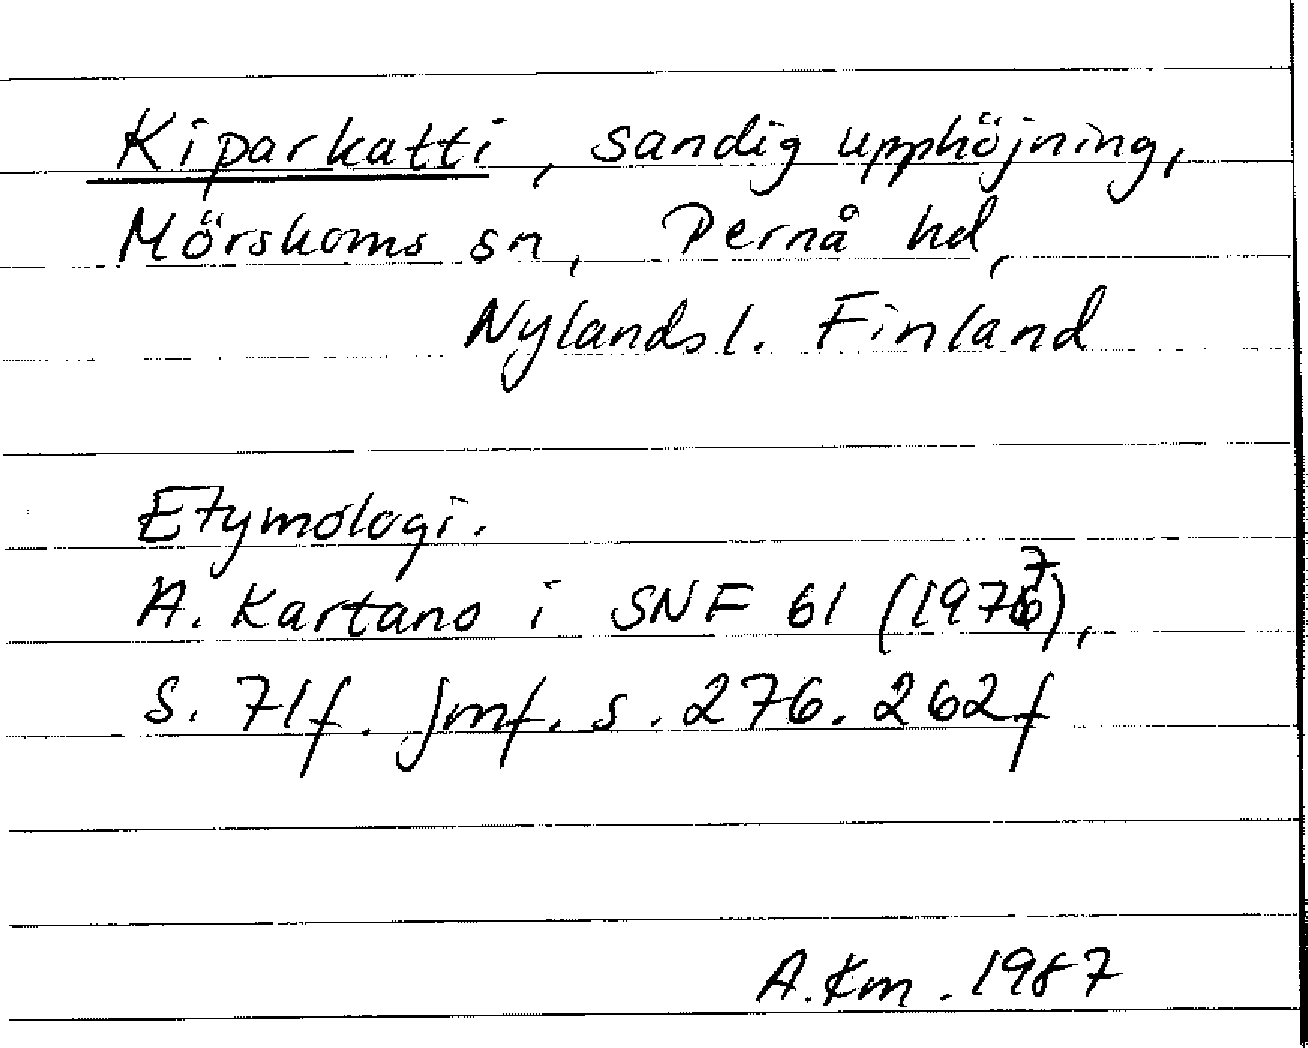 Kiparkatti, sandig upphöjning,
Mörskoms sn, Pernå hd,
Nylands l. Finland
Etymologi.
A. Kartano i SNF 61 (1977),
s. 71f. Jmf. s. 276. 262f
A.Km. 1987